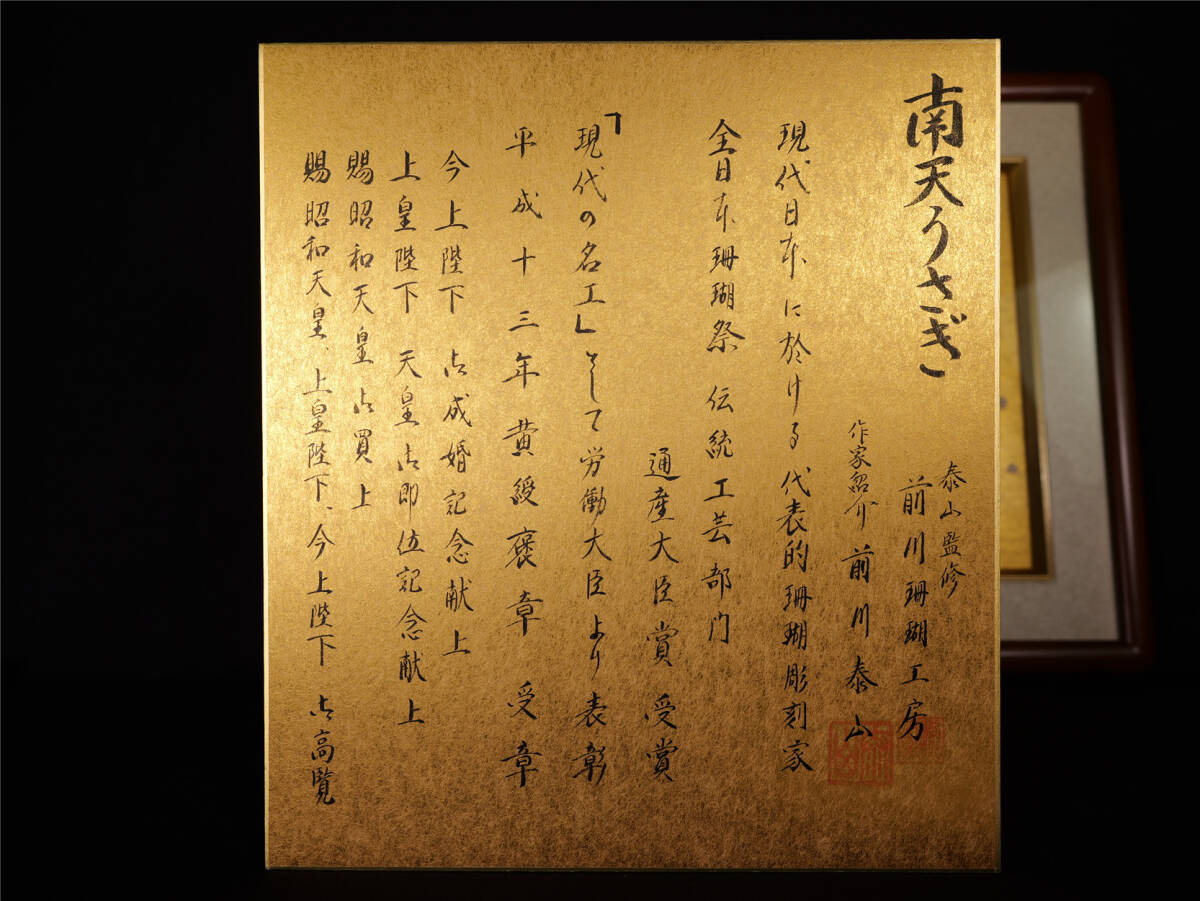 南天うさぎ
泰山監修
前川珊瑚工房
作家紹介 前川泰山
現代日本に於ける代表的珊瑚彫刻家
全日本珊瑚祭 伝統工芸部門
通産大臣賞 受賞
「現代の名工」として労働大臣より表彰
平成十三年 黄綬褒章 受章
今上陛下 御成婚記念献上
上皇陛下 天皇御即位記念献上
賜昭和天皇御買上
賜昭和天皇、上皇陛下、今上陛下 御高覧